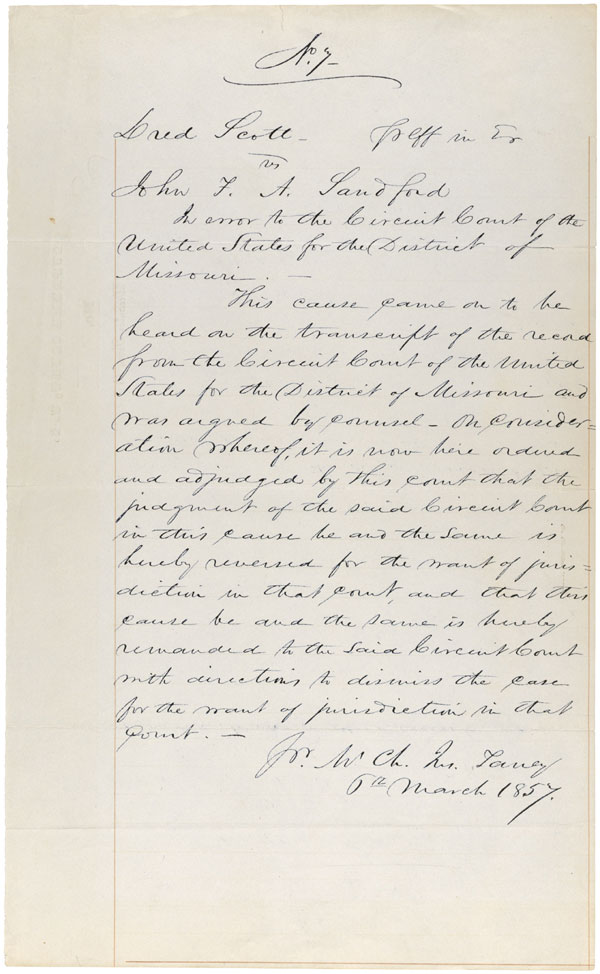 No. 7
Dred Scott – Plff in Er
vs
John F. A. Sandford
In error to the Circuit Court of the
United States for the District of
Missouri. –
This cause came on to be
heard on the transcript of the record
from the Circuit Court of the United
States for the District of Missouri and
was argued by counsel – On consider=
ation whereof, it is now here ordered
and adjudged by this court that the
judgment of the said Circuit Court
in this cause be and the same is
hereby reversed for the want of juris=
diction in that court, and that this
cause be and the same is hereby
remanded to the said Circuit Court
with directions to dismiss the case
for the want of jurisdiction in that
court. –
Pr. Mr Ch. Jus. Taney
6th March 1857.